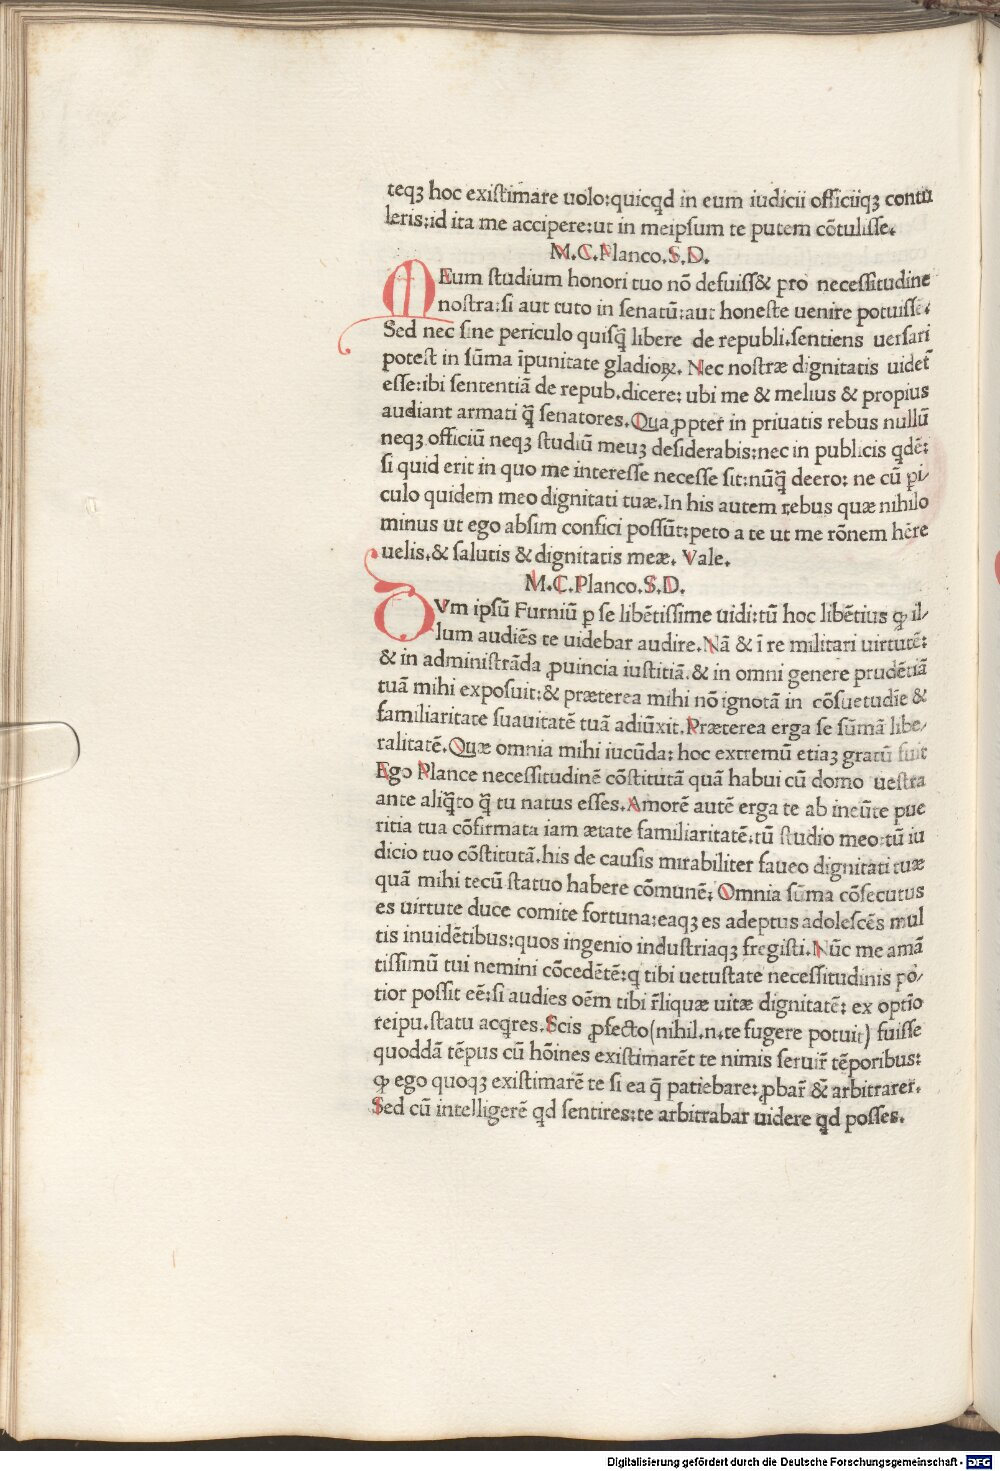 teqꝫ hoc existimare uolo:quicqd in eum iudicii officiiqꝫ contu
leris:id ita me accipere:ut in meipsum te putem cōtulisse.
M.C.Planco.S.D.
MEum studium honori tuo nō defuiss& pro necessitudine
nostra:si aut tuto in senatū:aut honeste uenire potuisse.
Sed nec sine periculo quisq̄ libere de republi.sentiens uersari
potest in sūma īpunitate gladioꝝ. Nec nostræ dignitatis uidet̄
esse:ibi sententiā de repub.dicere: ubi me & melius & propius
audiant armati q̄ senatores.Qua ꝓpter in priuatis rebus nullū
neqꝫ officiū neqꝫ studiū meuꝫ desiderabis:nec in publicis qdē:
si quid erit in quo me interesse necesse sit:nūq̄ deero: ne cū ꝑi⸗
culo quidem meo dignitati tuæ.In his autem rebus quæ nihilo
minus ut ego absim confici possūt:peto a te ut me rōnem hēre
uelis.& salutis & dignitatis meæ. Vale.
M.C.Planco.S.D.
DVm ipsū Furniū ꝑ se libētissime uidi:tū hoc libētius ꝙ il⸗
lum audiēs te uidebar audire.Nā & ī re militari uirtutē:
& in administrāda ꝓuincia iustitiā.& in omni genere prudētiā
tuā mihi exposuit:& præterea mihi nō ignotā in cōsuetudīe &
familiaritate suauitatē tuā adiūxit.Præterea erga se sūmā libe⸗
ralitatē.Quæ omnia mihi iucūda: hoc extremū etiaꝫ gratū fuit
Ego Plance necessitudinē cōstitutā quā habui cū domo uestra
ante aliq̄to q̄ tu natus esses.Amorē autē erga te ab ineūte pue
ritia tua cōfirmata iam ætate familiaritatē.tū studio meo:tū iu
dicio tuo cōstitutā.his de causis mirabiliter faueo dignitati tuæ
quā mihi tecū statuo habere cōmunē: Omnia sūma cōsecutus
es uirtute duce comite fortuna:eaqꝫ es adeptus adolescēs mul
tis inuidētibus:quos ingenio industriaqꝫ fregisti.Nūc me amā
tissimū tui nemini cōcedētē:q tibi uetustate necessitudinis po⸗
tior possit eē:si audies oēm tibi r̄liquæ uitæ dignitatē: ex optīo
reipu.statu acqres.Scis ꝓfecto(nihil.n.te fugere potuit) fuisse
quoddā tēpus cū hōines existimarēt te nimis seruir̄ tēporibus:
ꝙ ego quoqꝫ existimarē te si ea q̄ patiebare:ꝓbar̄ & arbitrarer.
Sed cū intelligerē qd sentires:te arbitrabar uidere qd posses.
Digitalisierung gefördert durch die Deutsche Forschungsgemeinschaft - DFG